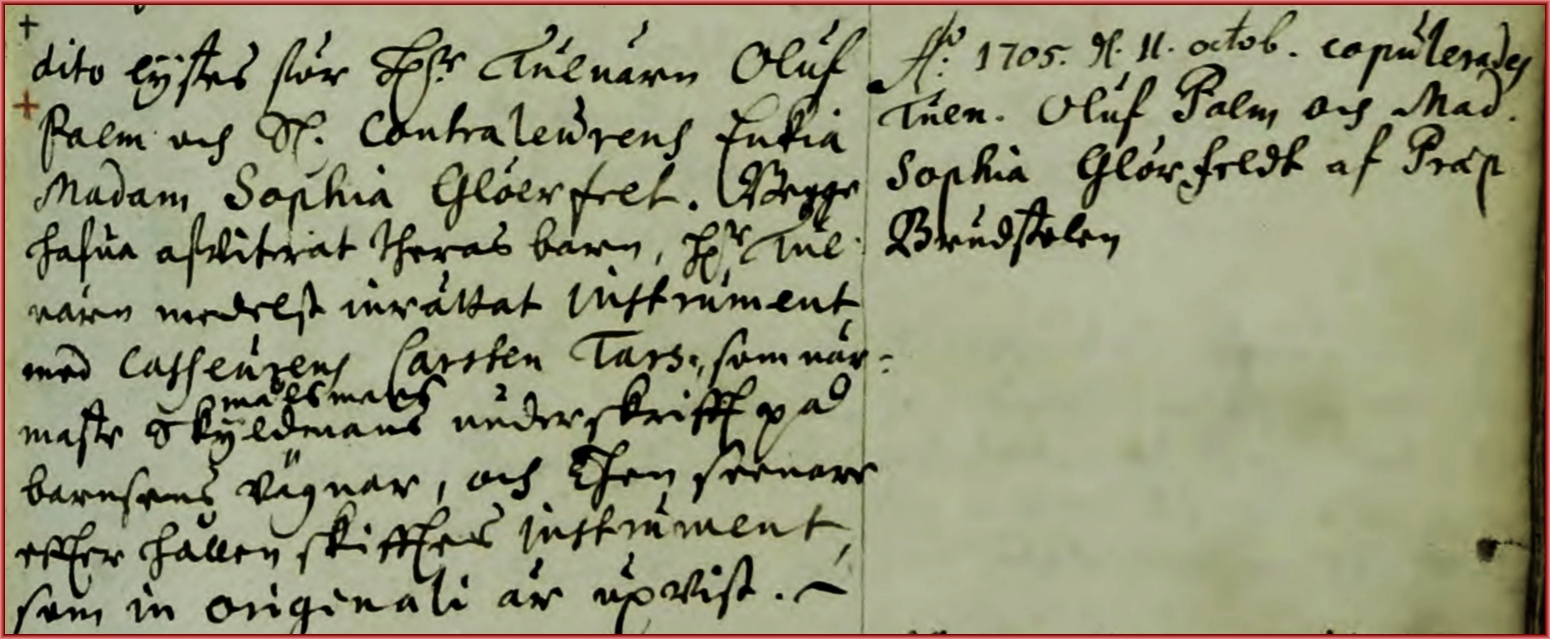 dito lystes för H:r Tulnärn Oluf
Palm och Sl. Contraleurens Enkia
Madam Sophia Glöerfelt. Begge
hafua afwiterat theras barn, H:r Tul-
närn medelst inrättat Instrument
med Casseurens Carsten Tars:, som när-
målsmans
maste Skyldmans underskrifft på
barnsens vägnar, och Then seenare
effter hållen skifftes instrument,
som in originali är upvist.
A:o 1705. d. 11. octob. copulerades
Tuln. Oluf Palm och Mad.
Sophia Glörfeldt af Præp
Brudstolen